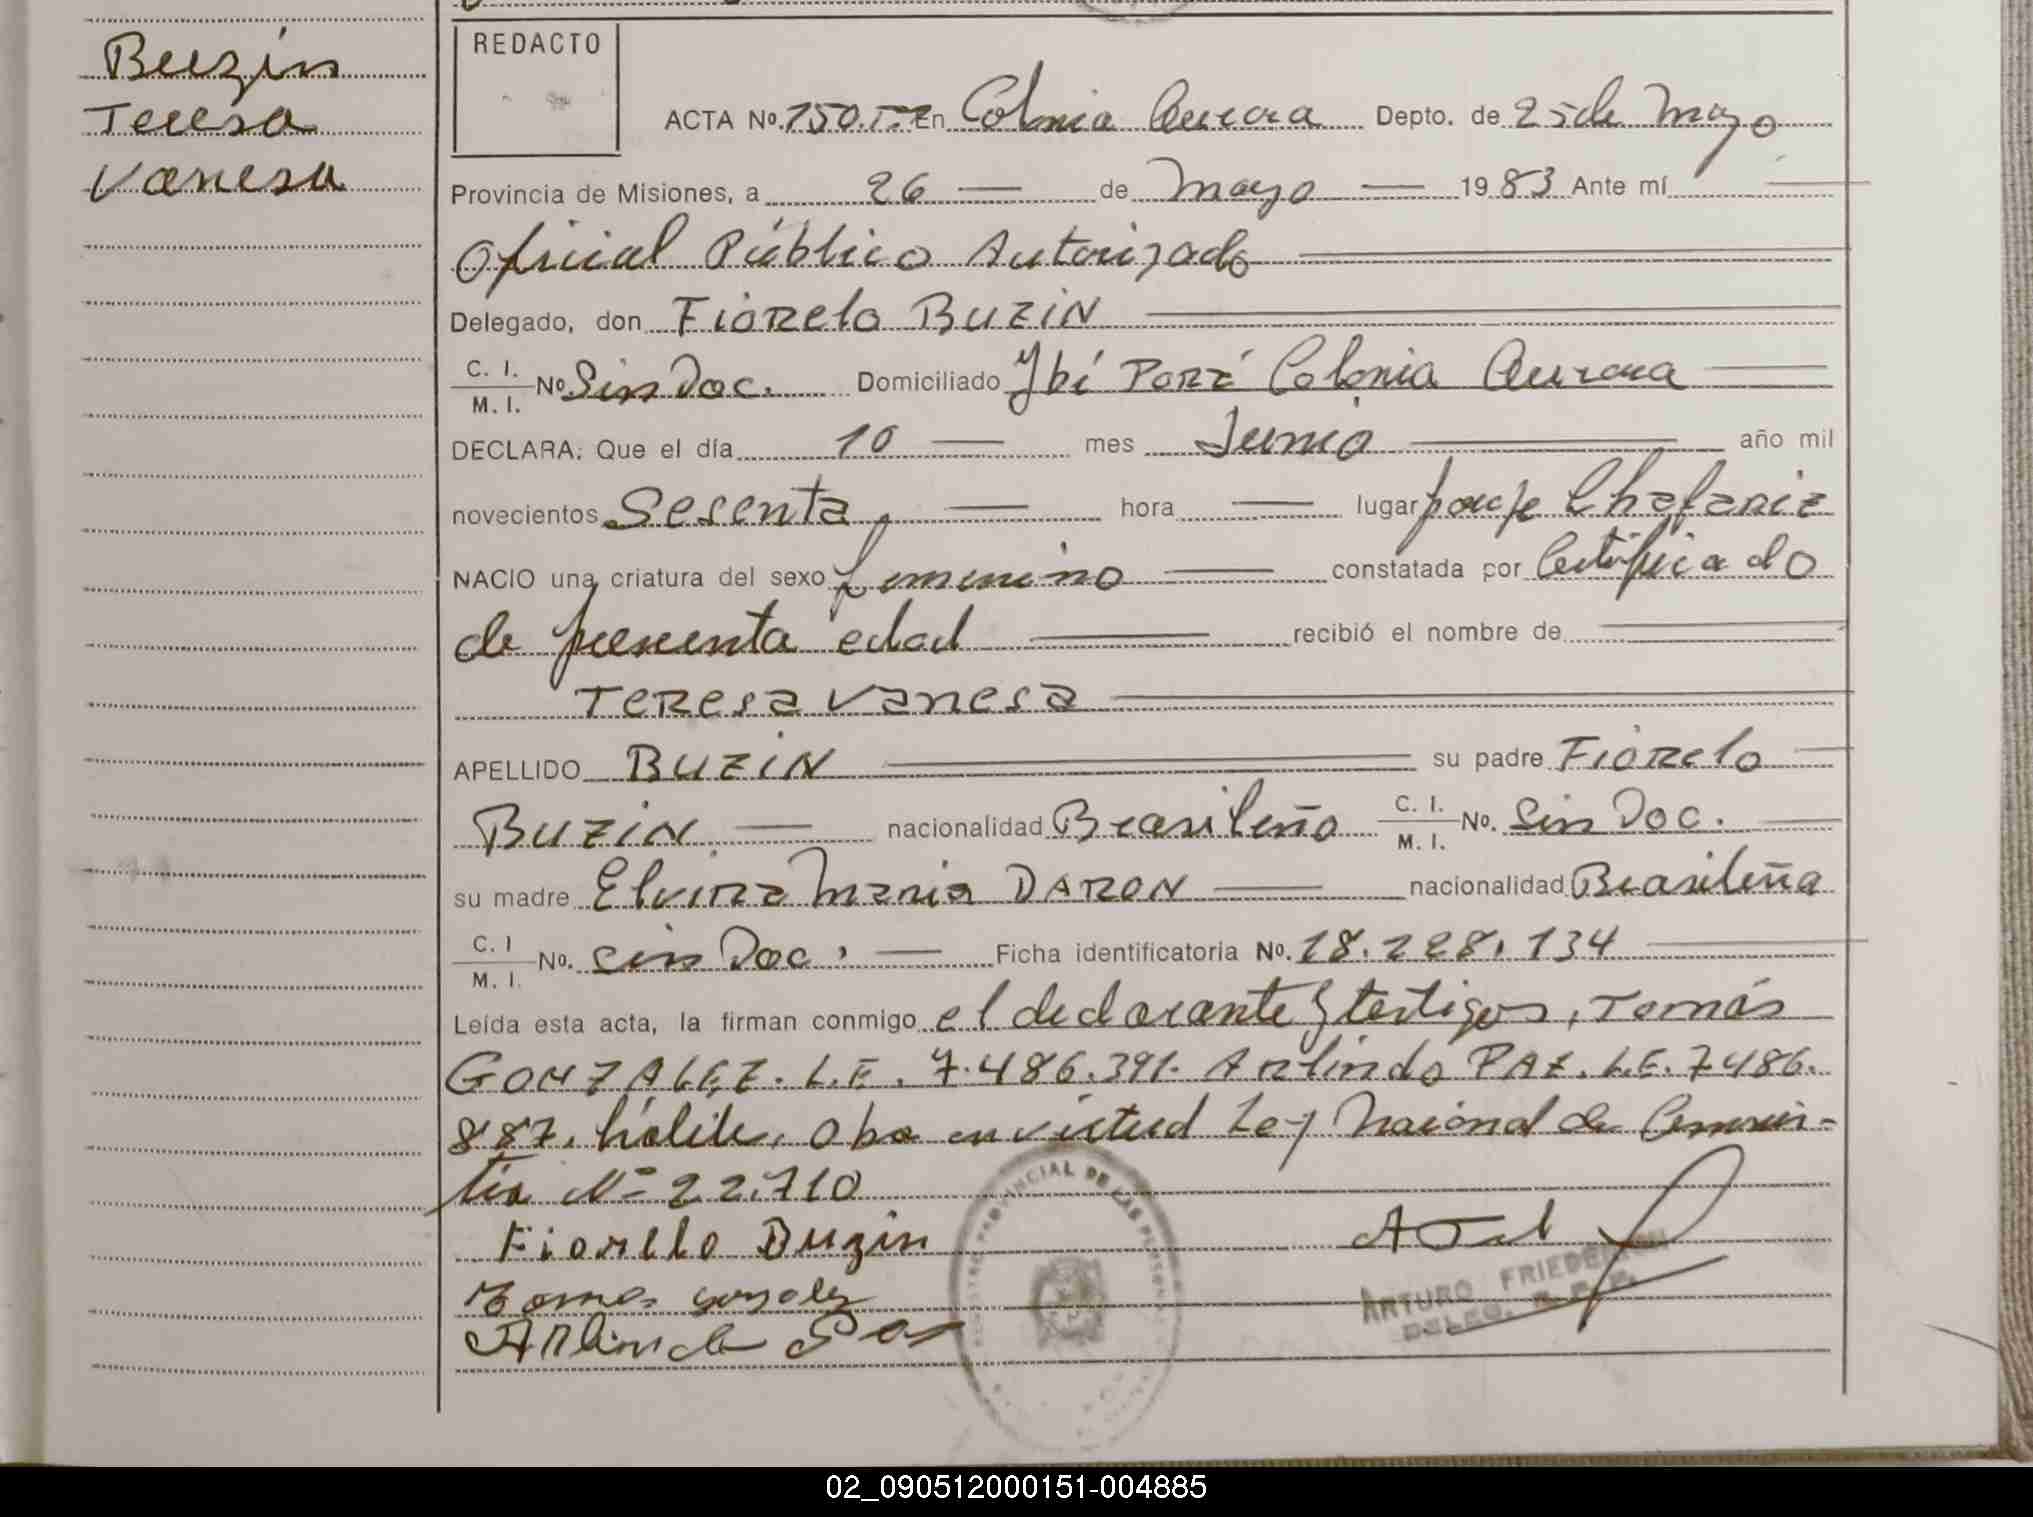 Buzin
Teresa
Vanesa
REDACTO
ACTA No. 150. En Colonia Aurora Depto. de 25 de Mayo
Provincia de Misiones, a 26 de Mayo 1983 Ante mí
Oficial Público Autorizado
Delegado, don Fiorelo BUZIN
C. I. / M. I. No Sin Doc. Domiciliado Ybí Porá Colonia Aurora
DECLARA: Que el día 10 mes Junio año mil
novecientos Sesenta, hora lugar paraje Chafariz
NACIO una criatura del sexo femenino constatada por Certificado
de presunta edad recibió el nombre de
Teresa Vanesa
APELLIDO BUZIN su padre Fiorelo
BUZIN nacionalidad Brasileño C. I. / M. I. No. Sin Doc.
su madre Elvira Maria DARON nacionalidad Brasileña
C. I / M. I. No. sin Doc. Ficha identificatoria No. 18.228.134
Leída esta acta, la firman conmigo el declarante y testigos, Tomás
GONZALEZ. L.E. 7.486.391. Arlindo PAZ. L.E. 7486.
887. hábiles, en virtud Ley Nacional de Amnis-
tía Nº 22.710
Fiorello Buzin
Arlindo Pas
REGISTRO PROVINCIAL DE LAS PERSONAS
ARTURO
DELEG.
02_090512000151-004885